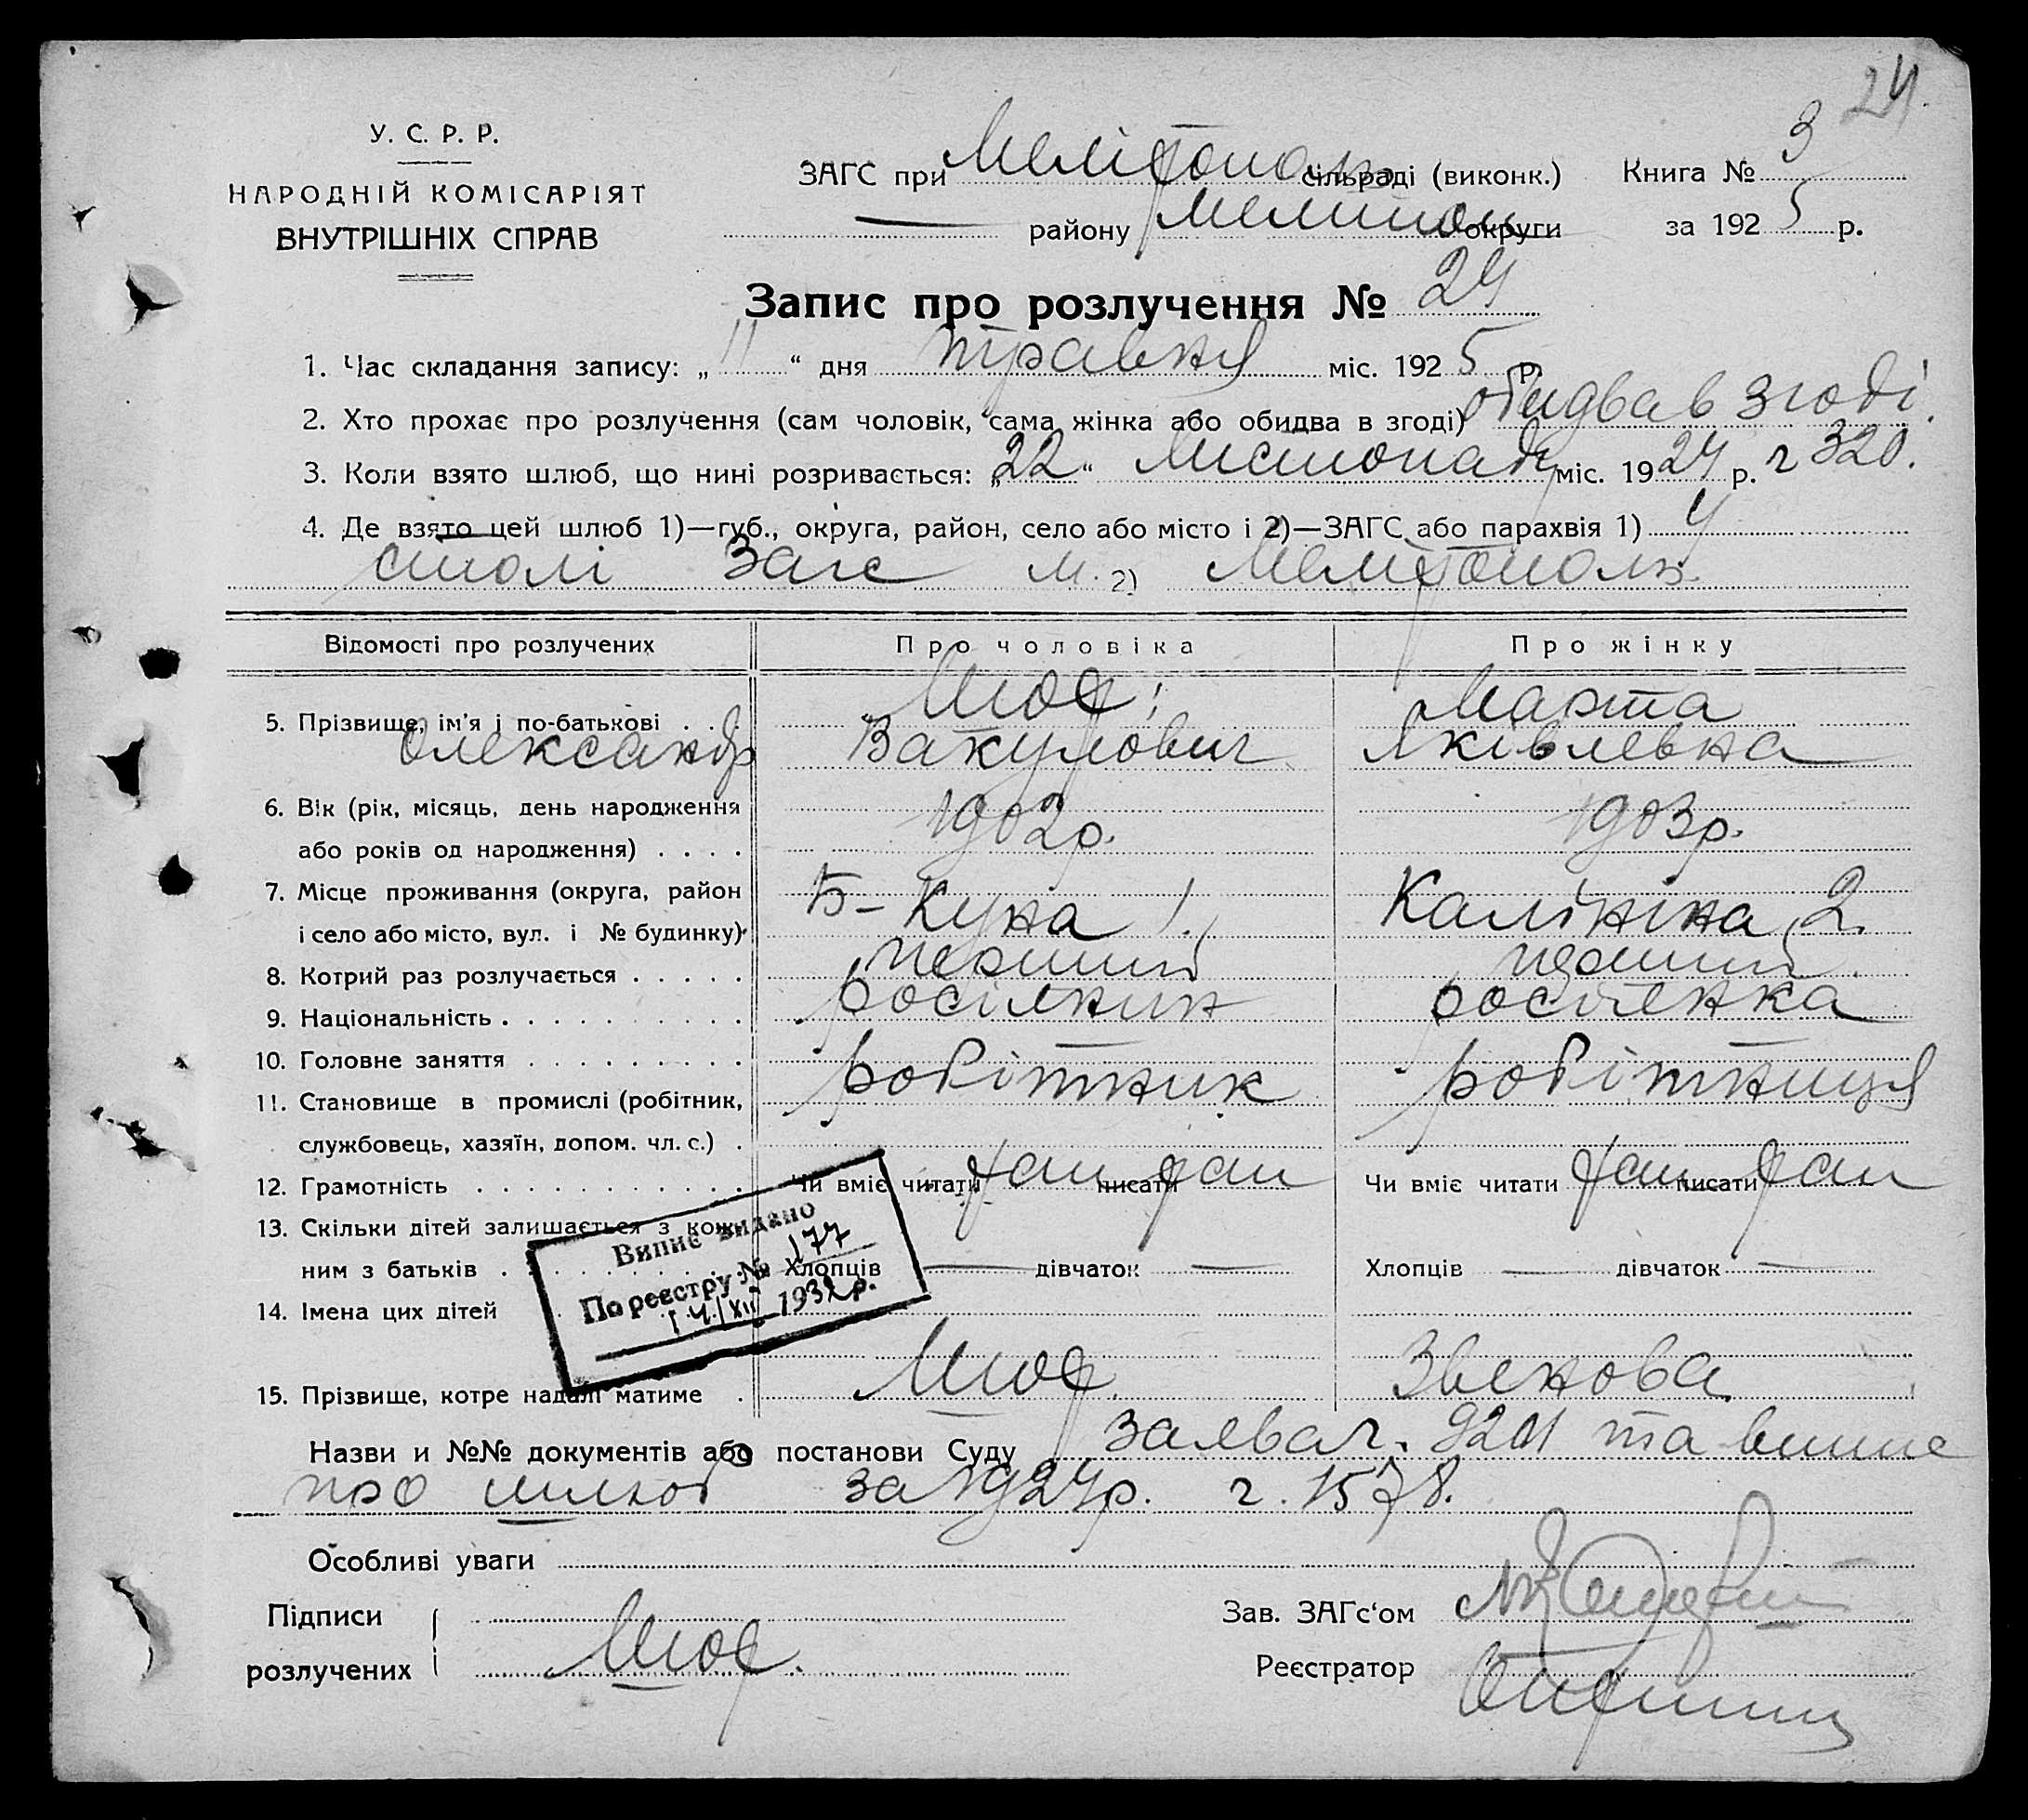 24.
У. С. Р. Р.
НАРОДНІЙ КОМІСАРІЯТ
ВНУТРІШНІХ СПРАВ
ЗАГС при Мелітопол. сільраді (виконк.) Книга № 3
— району Мелитоп округи за 1925 р.
Запис про розлучення № 24
1. Час складання запису: „11“ дня травня міс. 1925 р.
2. Хто прохає про розлучення (сам чоловік, сама жінка або обидва в згоді) обидва в згоді.
3. Коли взято шлюб, що нині розривається: „22“ Листопада міс. 1924 р. ч 320.
4. Де взято цей шлюб 1)—губ., округа, район, село або місто і 2)—ЗАГС або парахвія 1) У
столі Загс м. 2) Мелітополь
Відомості про розлучених Про чоловіка Про жінку
5. Прізвище, ім'я і по-батькові . . Шоф; Марта
Олександр Вакулович Яківлевна
6. Вік (рік, місяць, день народження 1902р. 1903р.
або років од народження) . . . .
7. Місце проживання (округа, район Б-Куна 1. Калініна 2.
і село або місто, вул. і № будинку)
8. Котрий раз розлучається . . . . . перший перший
9. Національність . . . . . . . . . . росіянин росіянка
10. Головне заняття . . . . . . . . . — —
11. Становище в промислі (робітник, робітник робітниця
службовець, хазяїн, допом. чл. с.) .
12. Грамотність . . . . . . . . . . . Чи вміє читати так писати так Чи вміє читати так писати так
13. Скільки дітей залишається з кож-
ним з батьків . . . Хлопців — дівчаток — Хлопців — дівчаток —
14. Імена цих дітей
Випис видано
По реєстру № 177
14/XII 1932 р.
15. Прізвище, котре надалі матиме . Шоф Звенова
Назви и №№ документів або постанови Суду заява ч. 9201 та випис
про шлюб за 1924р. ч. 1578.
Особливі уваги
Підписи
розлучених Шоф.
Зав. ЗАГс'ом
Реєстратор